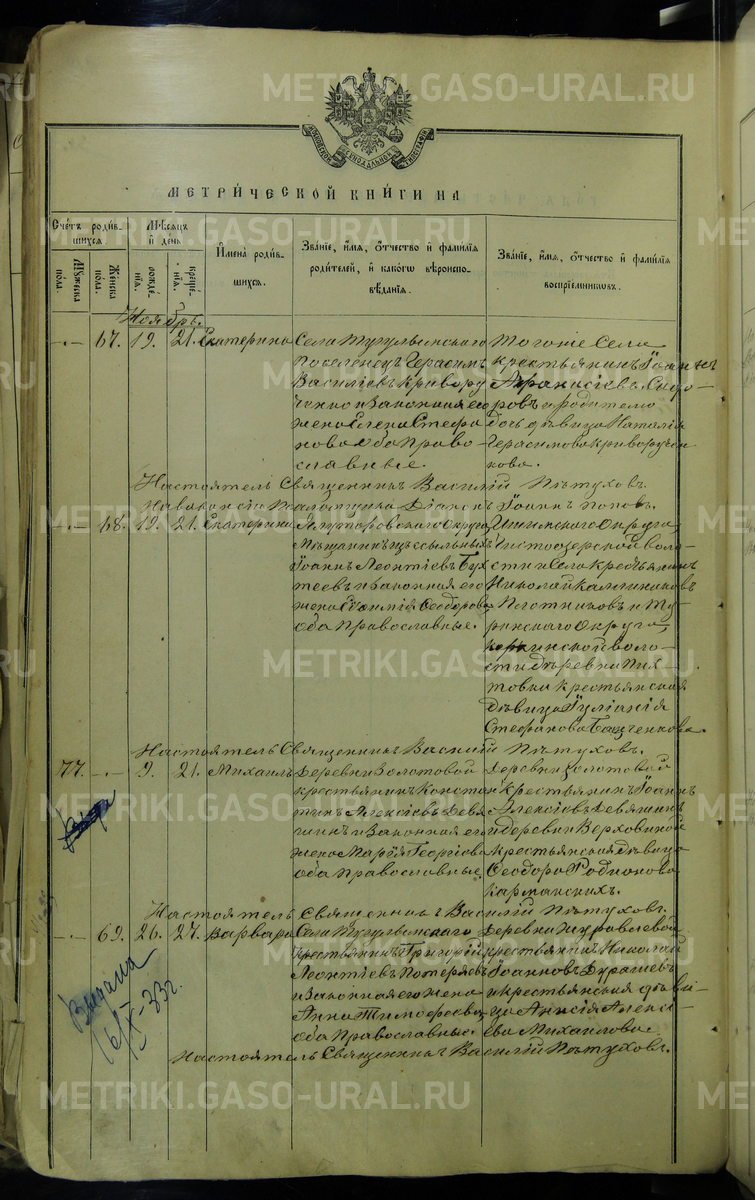 МЕТРИ́ЧЕСКОЙ КНИ́ГИ НА
Сче́тъ роди́в-
шихся.
Мѣ́сяцъ
и҆ де́нь
Мꙋ́жеска
по́ла.
Же́нска
по́ла.
рожде́-
нїѧ.
креще́-
нїѧ.
И҆мена̀ роди́в-
шихся.
Зва́нїе, и҆́мѧ, ѻ҆́тчество и҆ фамі́лїѧ
роди́телей, и҆ како́гѡ вѣроиспо-
вѣ́данїѧ.
Зва́нїе, и҆́мѧ, ѻ҆́тчество и҆ фамі́лїѧ
воспрїе́мникѡвъ.
Ноябрь.
67. 19. 21. Екатерина
Села Тугулымскаго
поселенецъ Герасимъ
Васильевъ Кривору
ченко и законная его
жена Елена Стефа
нова оба право-
славные.
Тогоже Села
крестьянинъ Іоаннъ
Афанасіевъ Сидо-
ровъ и родителю
дочь дѣвица Наталія
Герасимова Криворучен
кова.
Настоятель Священникъ Василій Пѣтуховъ.
Діаконъ Іоаннъ Поповъ.
68. 19. 21. Екатерина
Ялуторовскаго Округа
Мѣщанинъ изъ ссыльныхъ
Іоаннъ Леонтіевъ
и законная его
жена Евфимія Ѳеодорова
оба Православные.
Ишимскаго Округа
Чистоозерской воло
сти и Села Крестьянинъ
Николай Каллиниковъ
Плотниковъ и Ту-
ринскаго Округа
воло-
сти деревни Пих-
товки крестьянская
дѣвица Іуліанія
Стефанова
Настоятель Священникъ Василій Пѣтуховъ.
77. 9. 21. Михаилъ
Деревни Золотовой
крестьянинъ Констан
тинъ Алексіевъ Девя
шинъ и законная его
жена Марія Георгіева
оба православные.
Деревни Золотовой
Крестьянинъ Іоаннъ
Алексіевъ Девяшинъ
и деревни Верховиной
крестьянская дѣвица
Ѳеодора Родионова
Карманскихъ.
Настоятель Священникъ Василій Пѣтуховъ.
69. 26. 27. Варвара
Села Тугулымскаго
крестьянинъ Григорій
Леонтіевъ Потеряевъ
и законная его жена
Анна Тимоѳеева
оба Православные.
Деревни Журавлевой
крестьянинъ Николай
Іоанновъ
и крестьянская дѣви-
ца Анисія Алексі-
ева Михаилова.
Настоятель Священникъ Василій Пѣтуховъ.
Выдана
16/X-33г.
METRIKI.GASO-URAL.RU